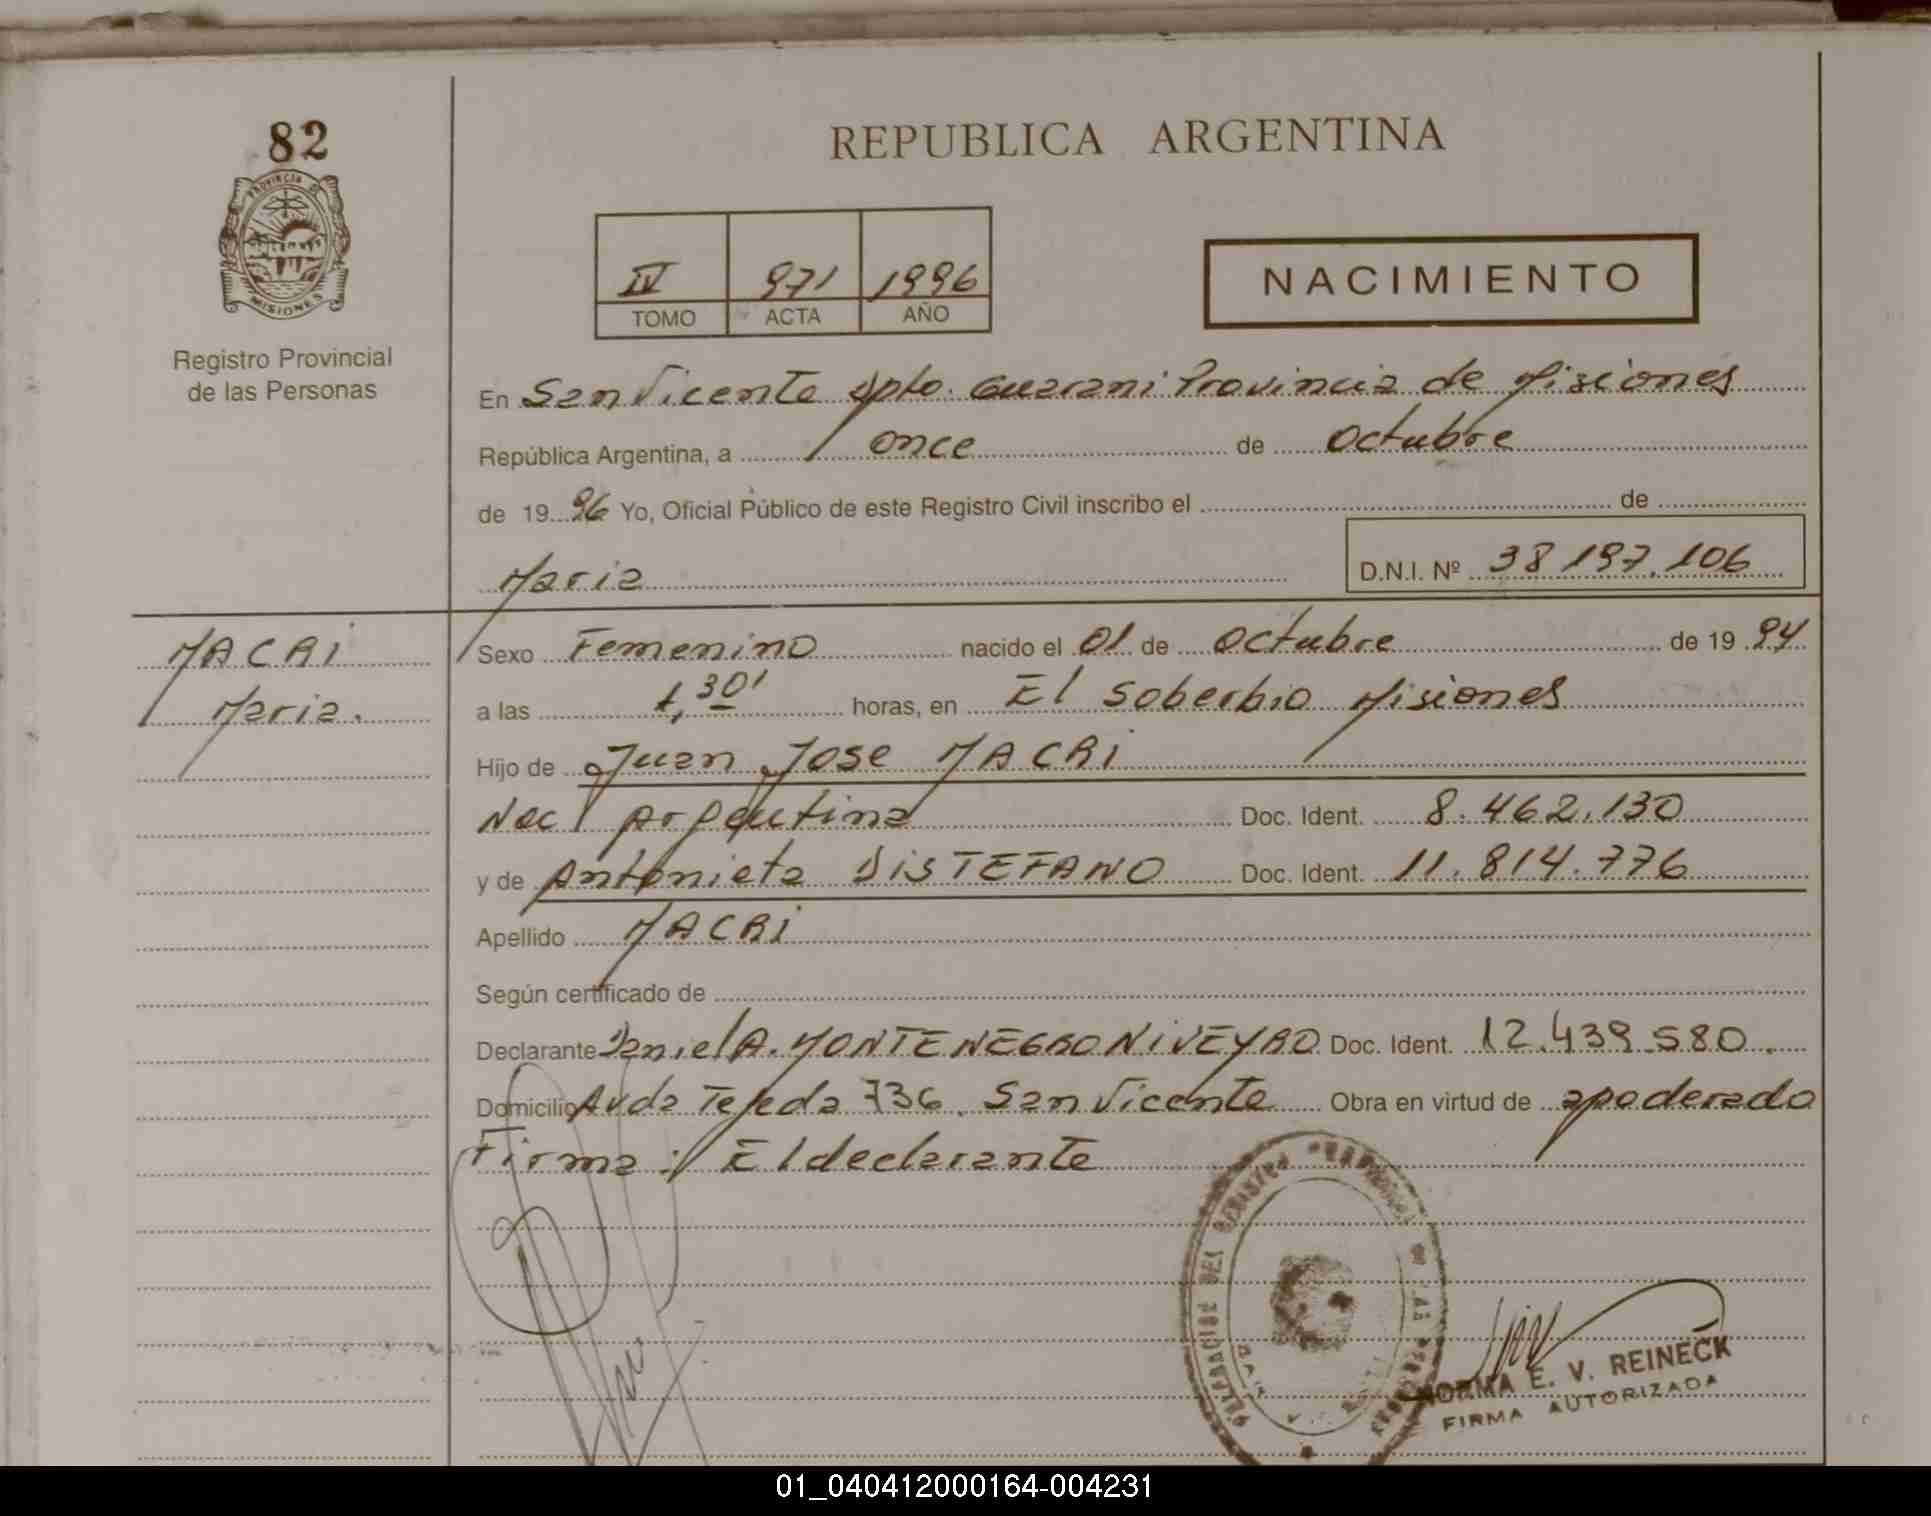 82
PROVINCIA DE
MISIONES
Registro Provincial
de las Personas
REPUBLICA ARGENTINA
IV 971 1996
TOMO ACTA AÑO
NACIMIENTO
En San Vicente Dpto. Guarani Provincia de Misiones
República Argentina, a once de octubre
de 19 96 Yo, Oficial Público de este Registro Civil inscribo el de
Maria D.N.I. Nº 38 197.106
MACRi
Maria.
Sexo Femenino nacido el 01 de octubre de 19 94
a las 1,30' horas, en El Soberbio Misiones
Hijo de Juan Jose MACRi
Nac argentina Doc. Ident. 8.462.130
y de Antonieta DiSTEFANO Doc. Ident. 11.814.776
Apellido MACRi
Según certificado de
Declarante Daniel A. MONTENEGRO NiVEYRO Doc. Ident. 12.439.580.
Domicilio Avda Tejeda 736. San Vicente Obra en virtud de apoderado
Firma: El declarante
NORMA E. V. REINECK
FIRMA AUTORIZADA
01_040412000164-004231